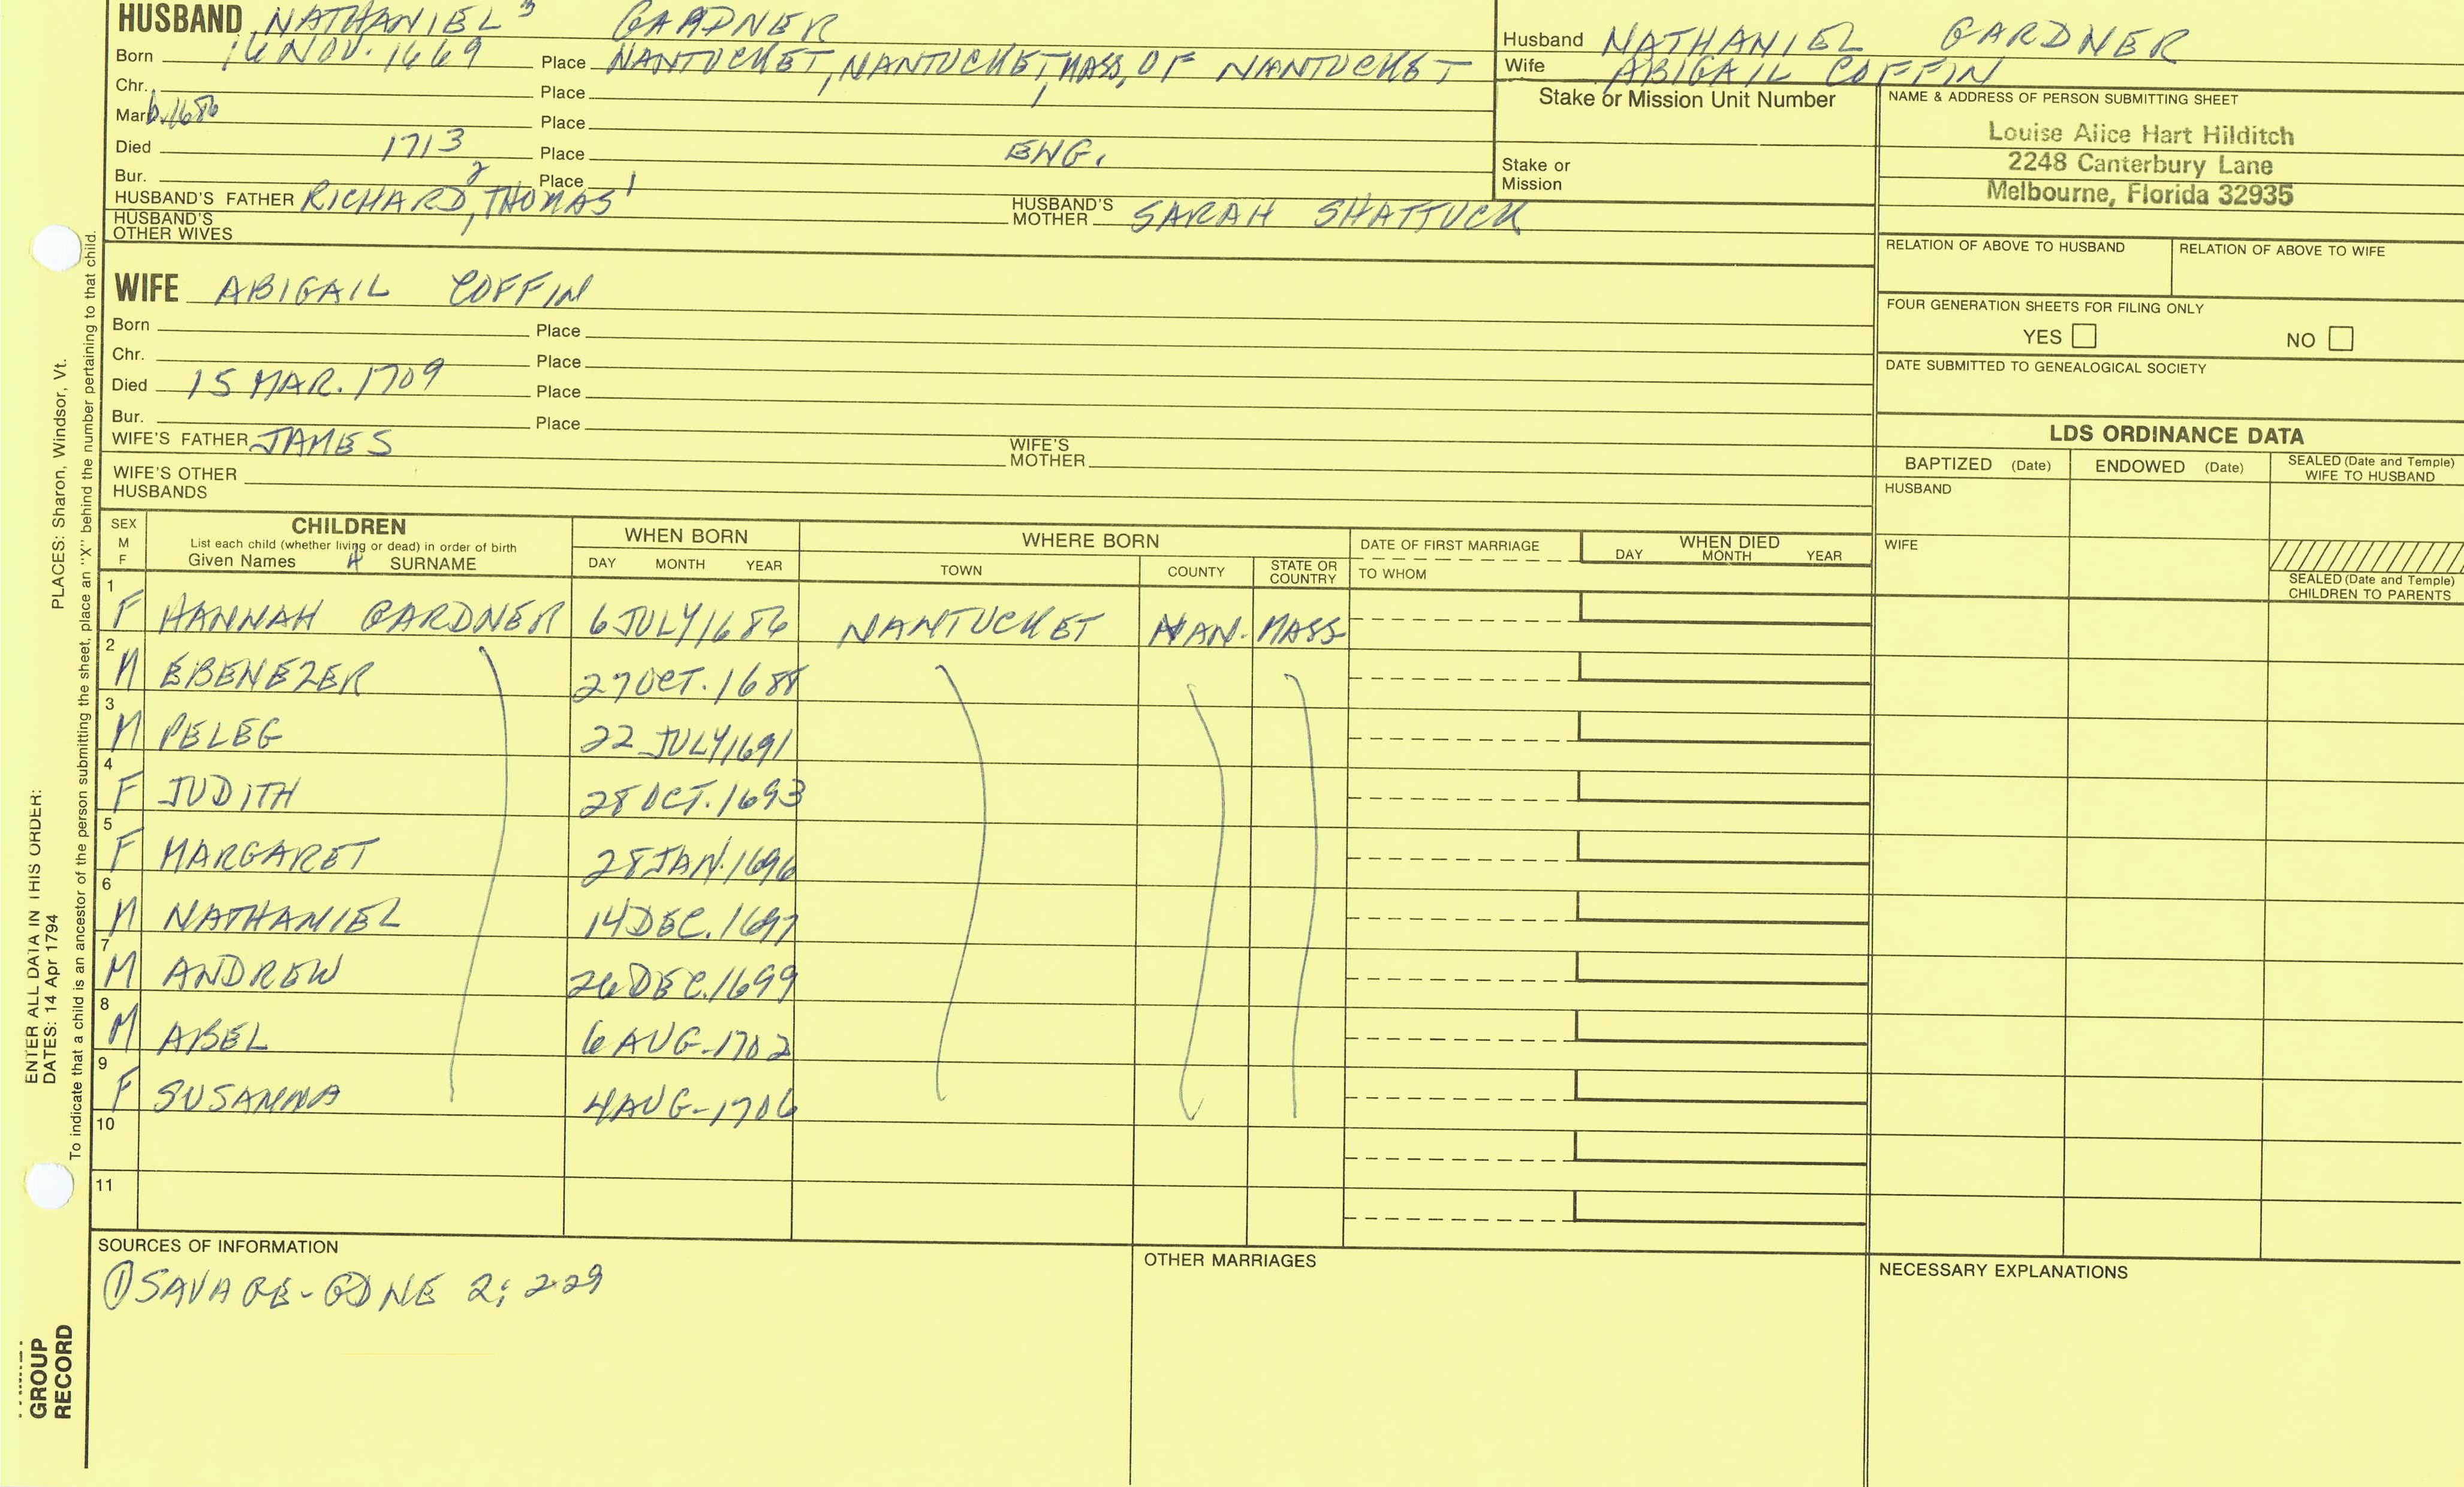 HUSBAND NATHANIEL 3 GARDNER
Born 16 NOV. 1669 Place NANTUCKET, NANTUCKET, MASS, OF NANTUCKET
Chr. Place
Mar. b. 1686 Place
Died 1713 Place ENG.
Bur. Place
HUSBAND'S FATHER RICHARD 2, THOMAS 1 HUSBAND'S MOTHER SARAH SHATTUCK
HUSBAND'S OTHER WIVES
Husband NATHANIEL GARDNER
Wife ABIGAIL COFFIN
Stake or Mission Unit Number
Stake or Mission
NAME & ADDRESS OF PERSON SUBMITTING SHEET
Louise Alice Hart Hilditch
2248 Canterbury Lane
Melbourne, Florida 32935
RELATION OF ABOVE TO HUSBAND RELATION OF ABOVE TO WIFE
FOUR GENERATION SHEETS FOR FILING ONLY
YES NO
DATE SUBMITTED TO GENEALOGICAL SOCIETY
WIFE ABIGAIL COFFIN
Born Place
Chr. Place
Died 15 MAR. 1709 Place
Bur. Place
WIFE'S FATHER JAMES WIFE'S MOTHER
WIFE'S OTHER HUSBANDS
LDS ORDINANCE DATA
BAPTIZED (Date) ENDOWED (Date) SEALED (Date and Temple) WIFE TO HUSBAND
HUSBAND
WIFE
SEALED (Date and Temple) CHILDREN TO PARENTS
SEX M F
CHILDREN
List each child (whether living or dead) in order of birth
Given Names 4 SURNAME
WHEN BORN
DAY MONTH YEAR
WHERE BORN
TOWN COUNTY STATE OR COUNTRY
DATE OF FIRST MARRIAGE
TO WHOM
WHEN DIED
DAY MONTH YEAR
1 F HANNAH GARDNER 6 JULY 1686 NANTUCKET NAN. MASS
2 M EBENEZER 27 OCT. 1688
3 M PELEG 22 JULY 1691
4 F JUDITH 28 OCT. 1693
5 F MARGARET 28 JAN. 1696
6 M NATHANIEL 14 DEC. 1697
7 M ANDREW 26 DEC. 1699
8 M ABEL 6 AUG. 1702
9 F SUSANNA 4 AUG. 1706
10
11
SOURCES OF INFORMATION
① SAVAGE - GDNE 2: 229
OTHER MARRIAGES
NECESSARY EXPLANATIONS
PLACES: Sharon, Windsor, Vt.
ENTER ALL DATA IN THIS ORDER:
DATES: 14 Apr 1794
To indicate that a child is an ancestor of the person submitting the sheet, place an "X" behind the number pertaining to that child.
GROUP
RECORD